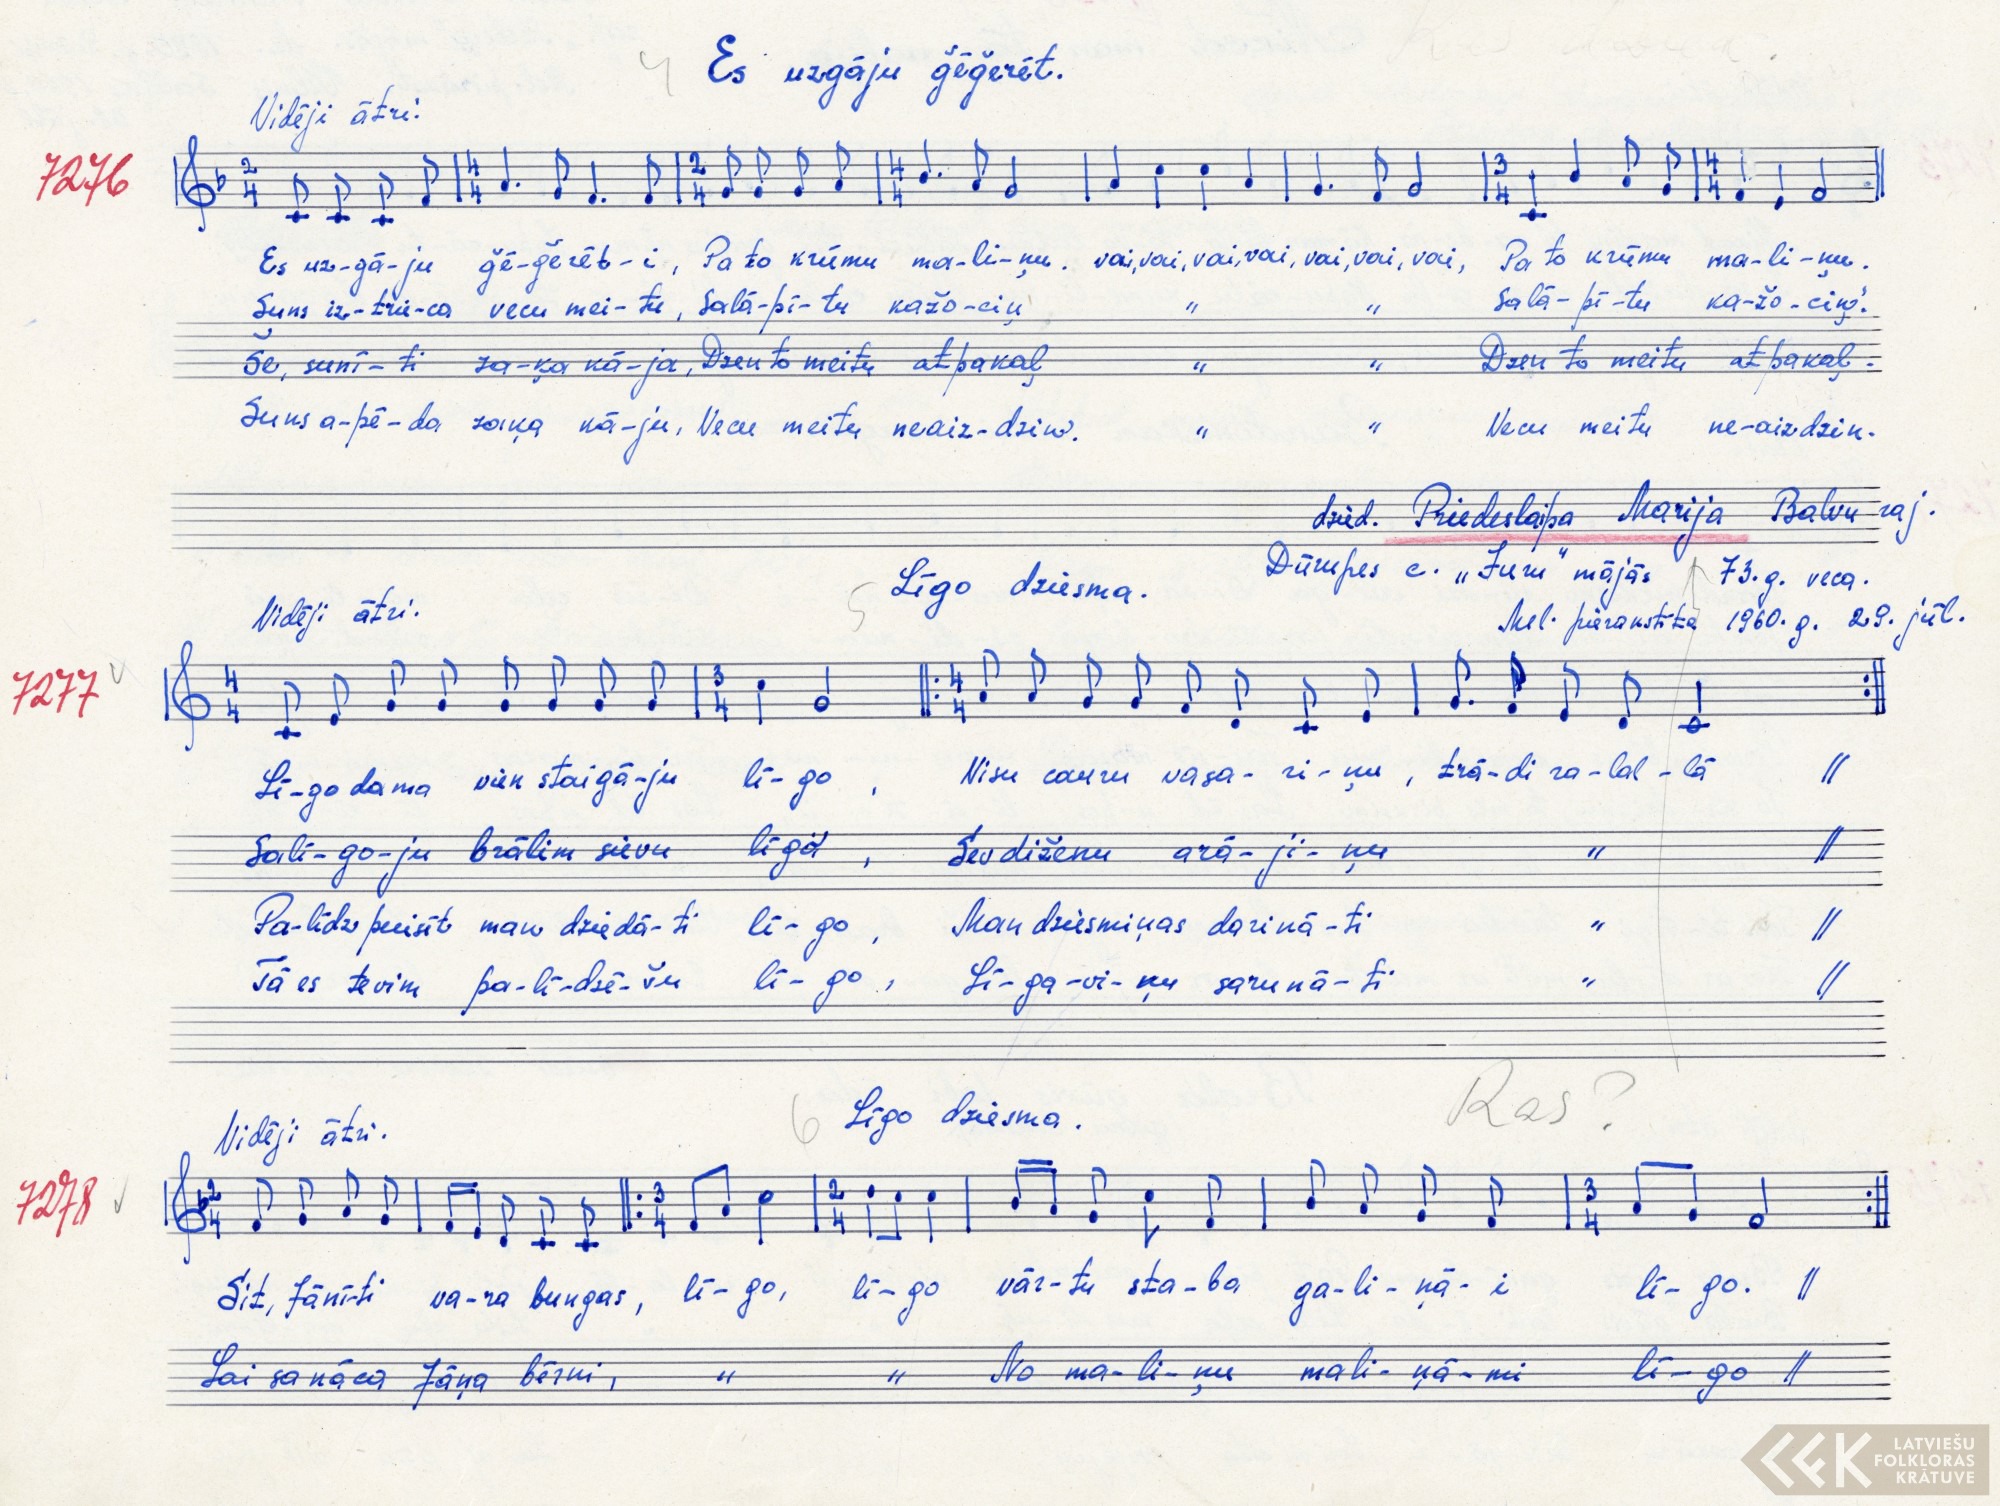 4 Es uzgāju ģēģerēt.
Vidēji ātri.
7276
Es uz-gā-ju ģē-ģerēt-i, Pa to krūmu ma-li-ņu. vai, vai, vai, vai, vai, vai, vai, Pa to krūmu ma-li-ņu.
Suns iz-trū-ca vecu mei-tu, Salā-pī-tu kažo-ciņ " " Salā-pī-tu ka-žo-ciņ'.
Še, sunī-ti za-ķa kā-ja, Dzen to meitu atpakaļ " " Dzen to meitu atpakaļ.
Suns a-pē-da zaķa kā-ju, Vecu meitu neaiz-dzin. " " Vecu meitu ne-aizdzin.
dzied. Priedeslaipa Marija Balvu raj.
5 Līgo dziesma.
Dūrupes c. "Juru" mājās 73.g. veca.
Vidēji ātri.
Mel. pierakstīta 1960.g. 29. jūl.
7277
Lī-godama vien staigā-ju lī-go, Visu cauru vasa-ri-ņu, trā-di ra-lal-lā //
Salī-go-ju brālim sievu līgā, Sev diženu arā-ji-ņu " //
Pa-līdz puisīt man dziedā-ti lī-go, Man dziesmiņas darinā-ti " //
Tā es tevim pa-lī-dzē-šu lī-go, Lī-ga-vi-ņu sarunā-ti " //
Kas?
6 Līgo dziesma.
Vidēji ātri.
7278
Sit, Jānī-ti va-ra bungas, lī-go, lī-go vār-tu sta-ba ga-li-ņā-i lī-go. //
Lai sanāca Jāņa bērni, " " No ma-li-ņu mali-ņā-mi lī-go //
LATVIEŠU
FOLKLORAS
KRĀTUVE